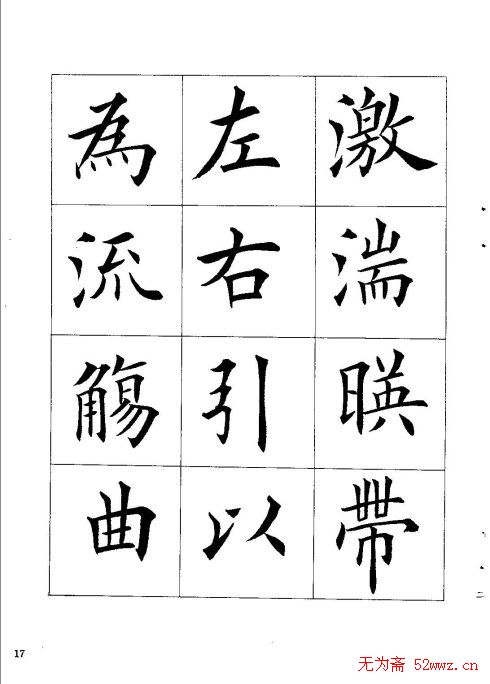 激湍暎帶
左右引以
為流觴曲
17
无为斋 52wwz.cn